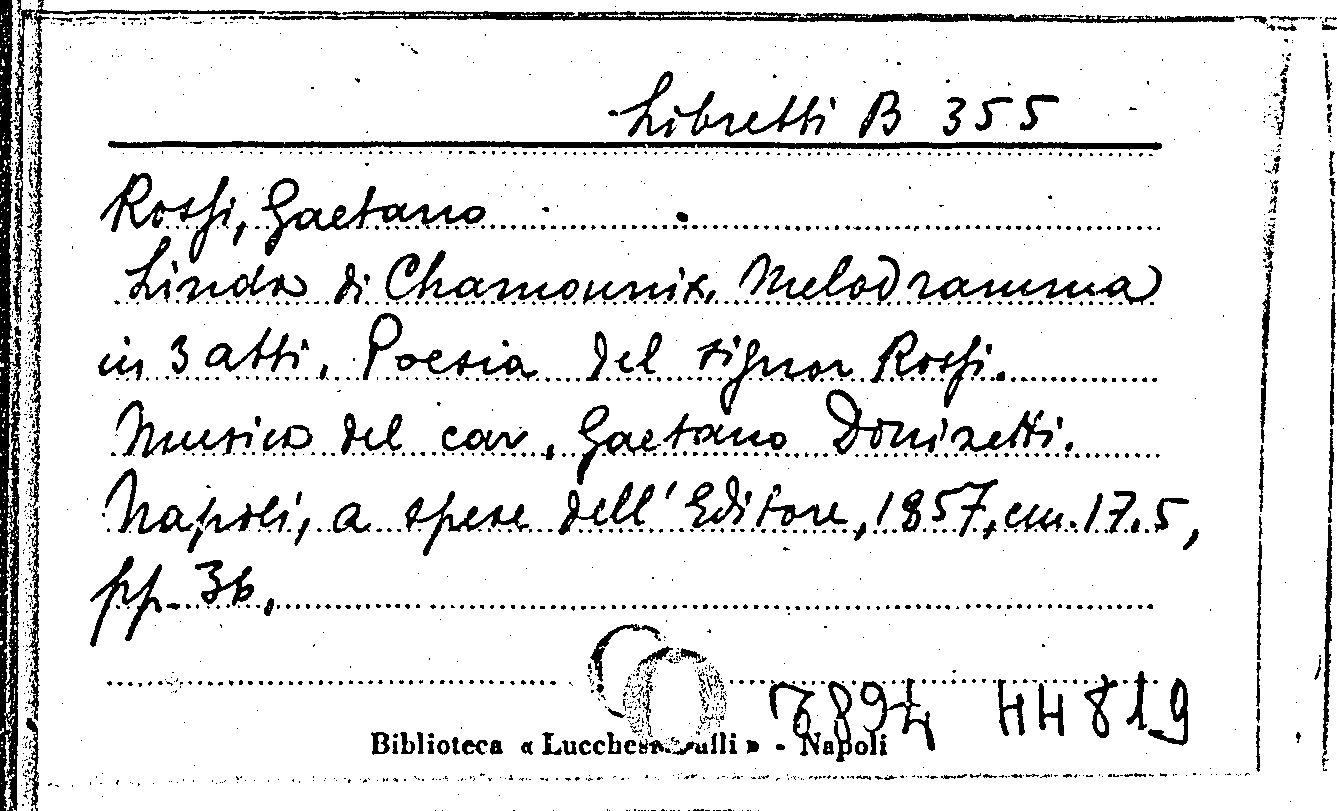 Libretti B 355
Rossi, Gaetano
Linda di Chamounix. Melodramma
in 3 atti. Poesia del signor Rossi.
Musica del cav. Gaetano Donizetti.
Napoli, a spese dell'Editore, 1857, cm. 17.5,
pp. 36.
7894 HH819
Biblioteca « Lucchesi Palli » - Napoli